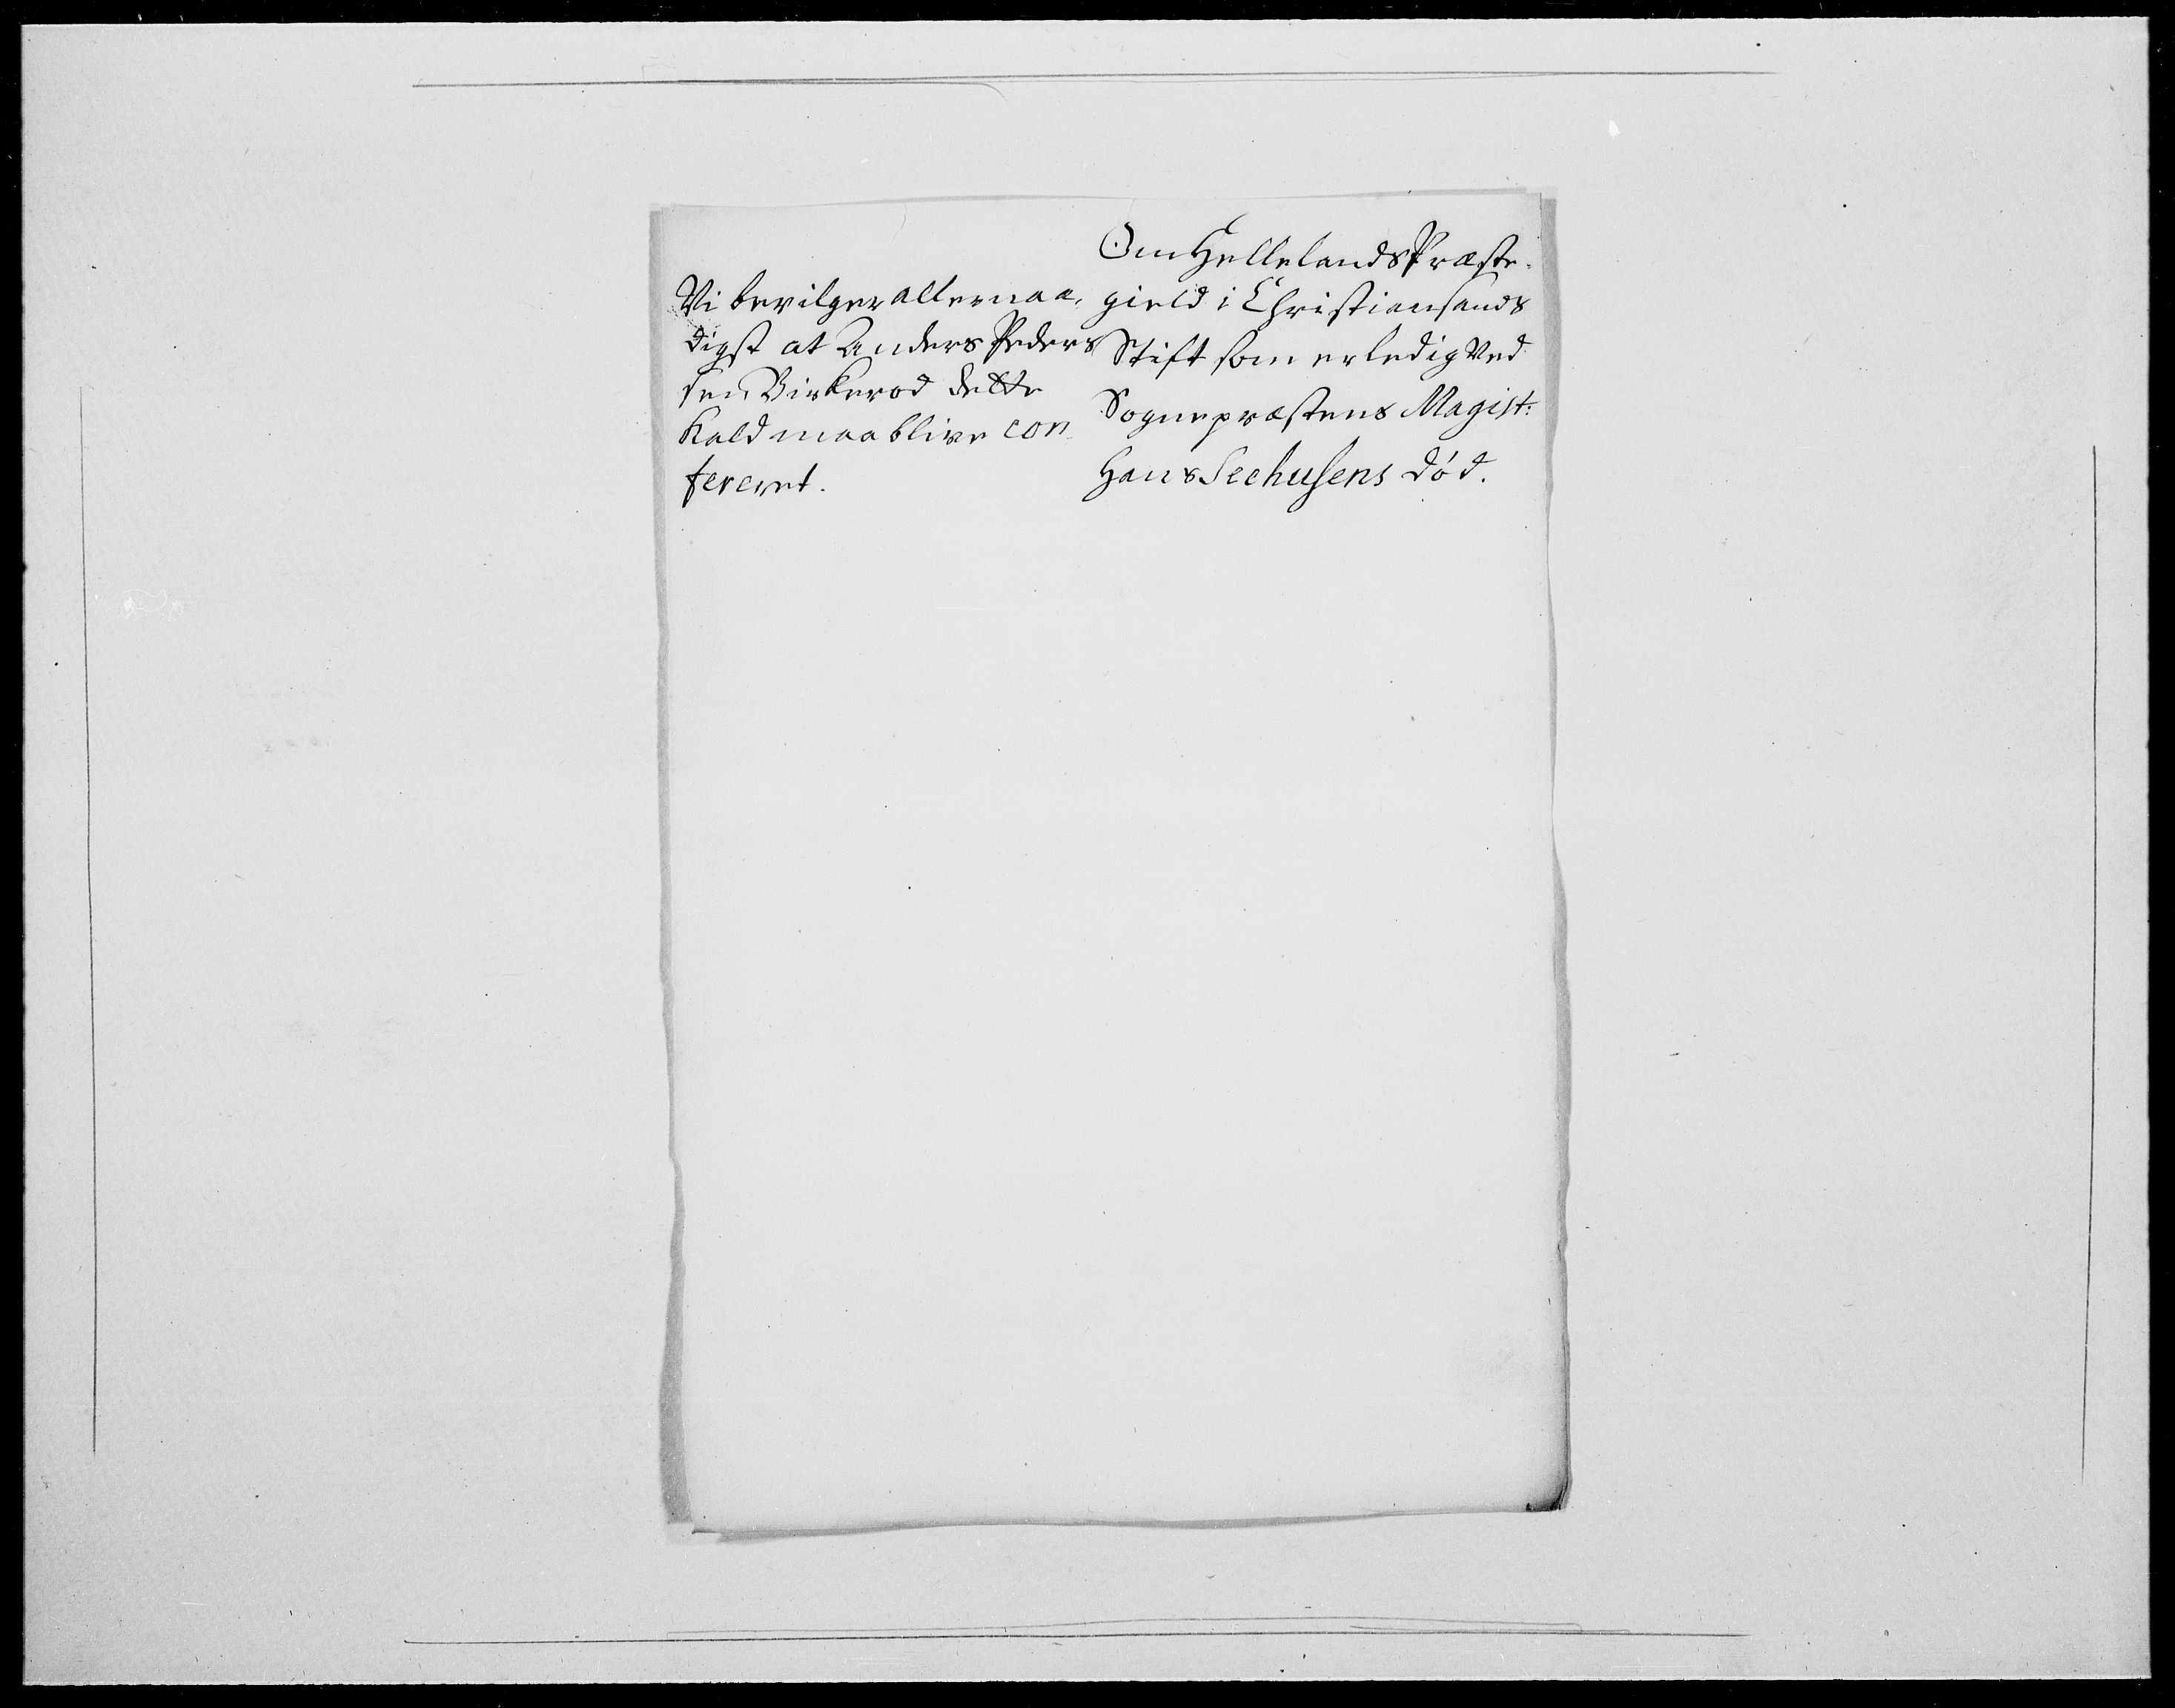 Om Hellelands Præste-
gield i Christiansands
Stift som er ledig Ved
Sognepræstens Magist:
Hans Seehusens død.
Vi bevilger allernaa,
digst at Anders Peders
sen Birkerod dette
Kald maa blive con
fereret.